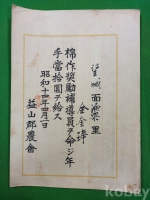 望城面壯巖里
金金鐸
棉作奬勵補導員ヲ命シ年
手當拾圓ヲ給ス
昭和十四年四月一日
益山郡農會
kobay